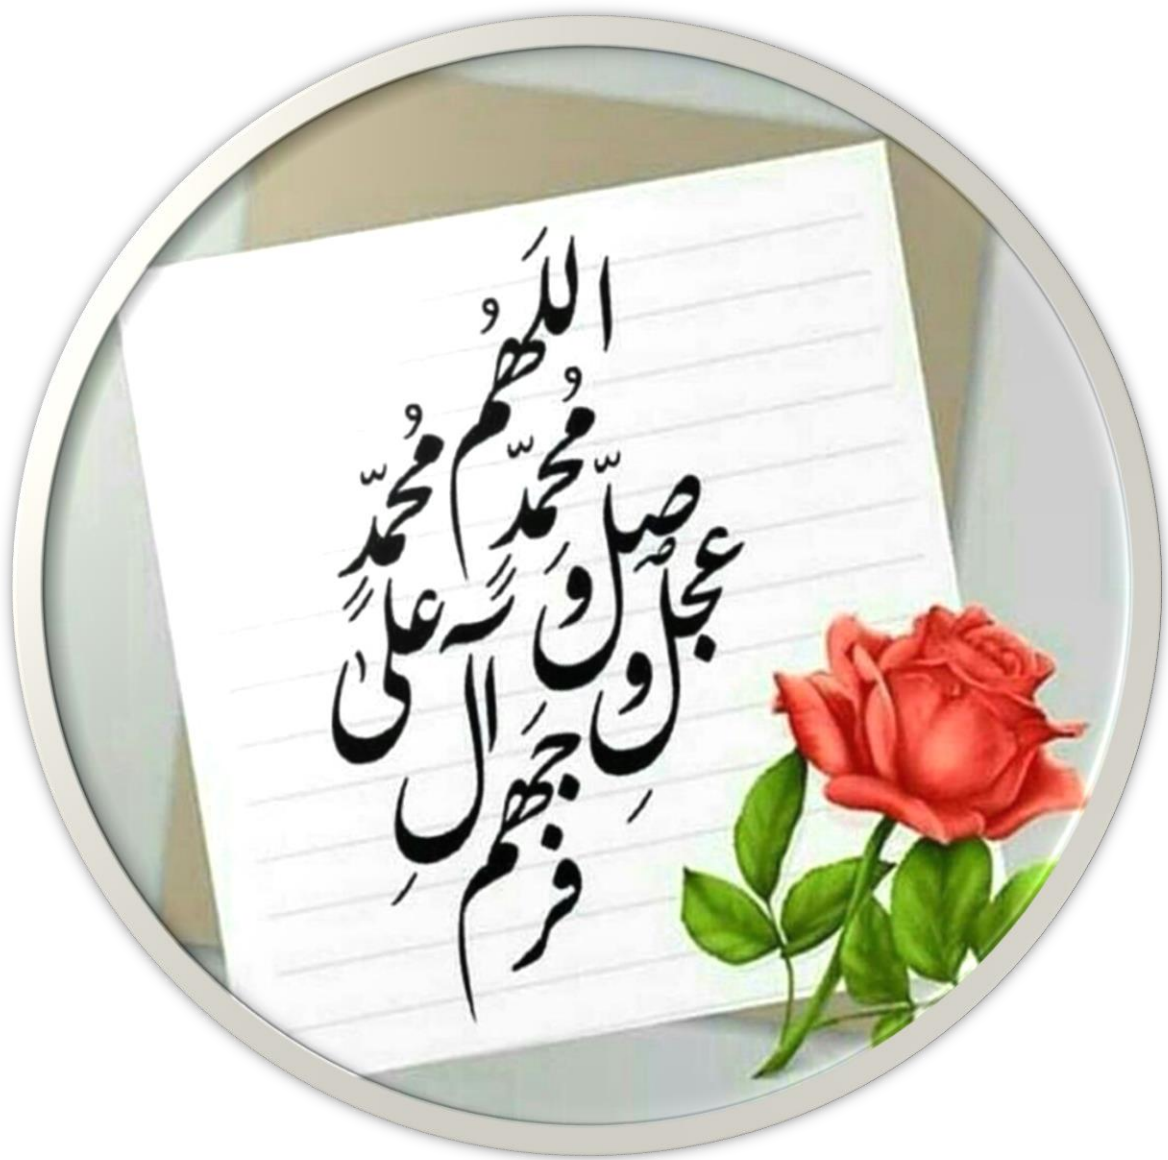 اللَهُم
صلّ علیٰ مُحمّدٍ
وَ آلِ مُحمّدٍ
وَ عجلْ فرجَهم